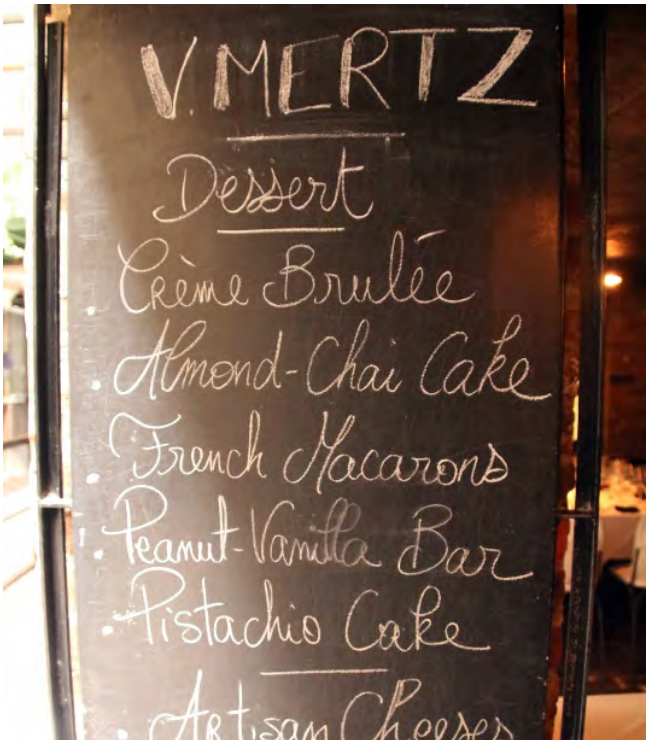 V. MERTZ
Dessert
· Crème Brulée
· Almond-Chai Cake
· French Macarons
· Peanut-Vanilla Bar
· Pistachio Cake
· Artisan Cheeses